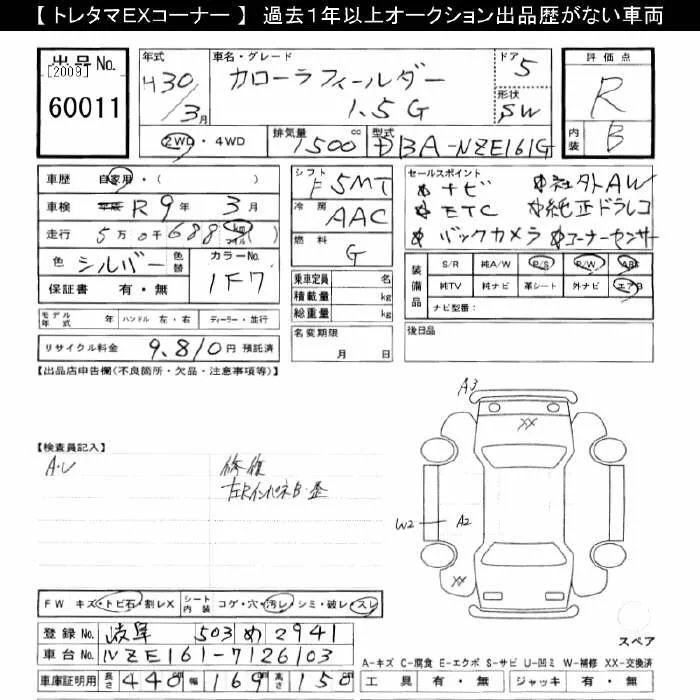 【 トレタマEXコーナー 】 過去1年以上オークション出品歴がない車両
出品No.
[2009]
60011
年式
H30/3月
車名・グレード
カローラフィールダー
1.5G
ドア 5
形状 SW
評価点
R
内装 B
2WD・4WD
排気量 1500 cc
型式 DBA-NZE161G
車歴 自家用・( )
車検 R9年 3月
走行 5万0千688 km マイル
色 シルバー 色替
カラーNo. 1F7
保証書 有・無
モデル年式 年 ハンドル 左・右 ディーラー・並行
リサイクル料金 9,810円 預託済
シフト F5MT
冷房 AAC
燃料 G
乗車定員 名
積載量 kg
総重量 kg
名変期限 月 日
セールスポイント
ナビ 社外AW
ETC 純正ドラレコ
バックカメラ コーナーセンサー
装備品 S/R 純A/W P/S P/W ABS
純TV 純ナビ 革シート 外ナビ エアB
ナビ型番:
後日品
【出品店申告欄(不良箇所・欠品・注意事項等)】
【検査員記入】
A・U
修復
左Rインパネ B・歪
A3
XX
W2
A2
XX
スペア
FW キズ・トビ石・割レX シート内装 コゲ・穴・汚レ・シミ・破レ・スレ
登録No. 岐阜 503 め 2941
車台No. NZE161-7126103
車庫証明用 長さ 440 幅 169 高さ 150
A-キズ C-腐食 E-エクボ S-サビ U-凹ミ W-補修 XX-交換済
工具 有・無 ジャッキ 有・無